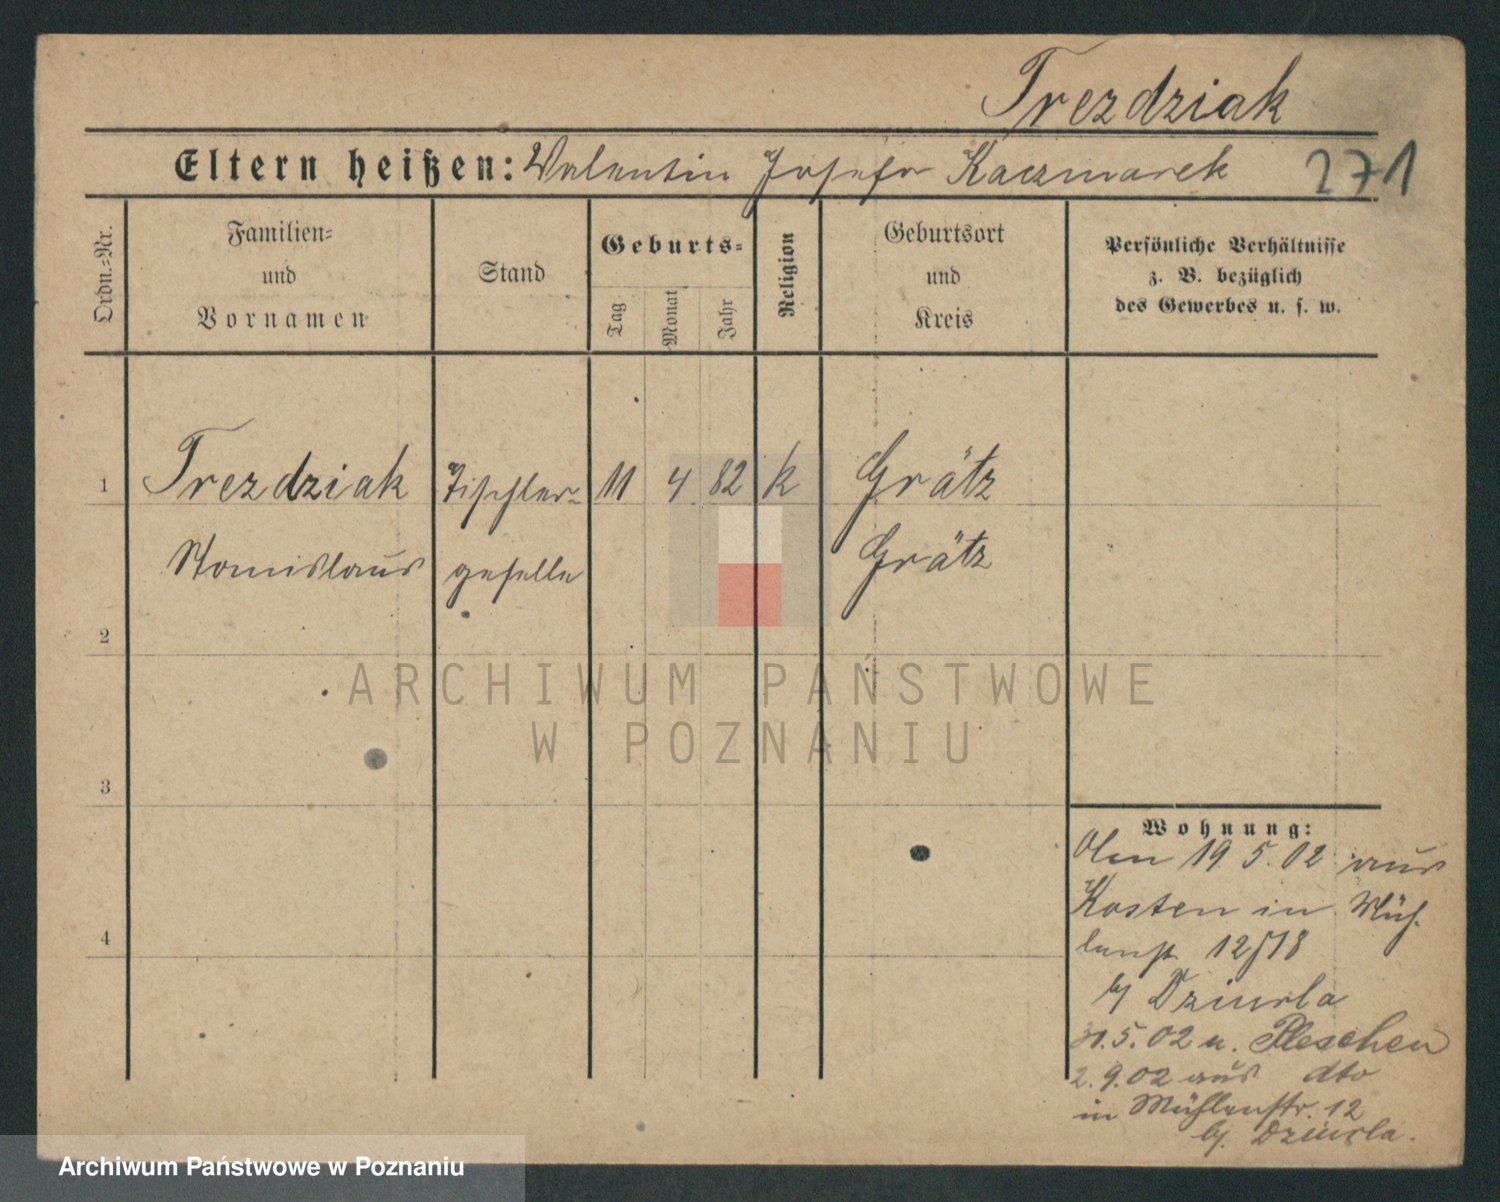 Trezdziak
Eltern heißen: Valentin Josefa Kaczmarek
271
Ordn.-Nr.
Familien-
und
Vornamen
Stand
Geburts-
Tag
Monat
Jahr
Religion
Geburtsort
und
Kreis
Persönliche Verhältnisse
z. B. bezüglich
des Gewerbes u. s. w.
1 Trezdziak Tischler- 11 4 82 k Grätz
Stanislaus geselle Grätz
2
3
4
Wohnung:
19.5.02 aus
Kosten in Müh-
lenstr. 12/18
b/ Dziurla
31.5.02 n. Pleschen
2.9.02 aus dto
in Mühlenstr. 12
b/ Dziurla.
ARCHIWUM PAŃSTWOWE
W POZNANIU
Archiwum Państwowe w Poznaniu